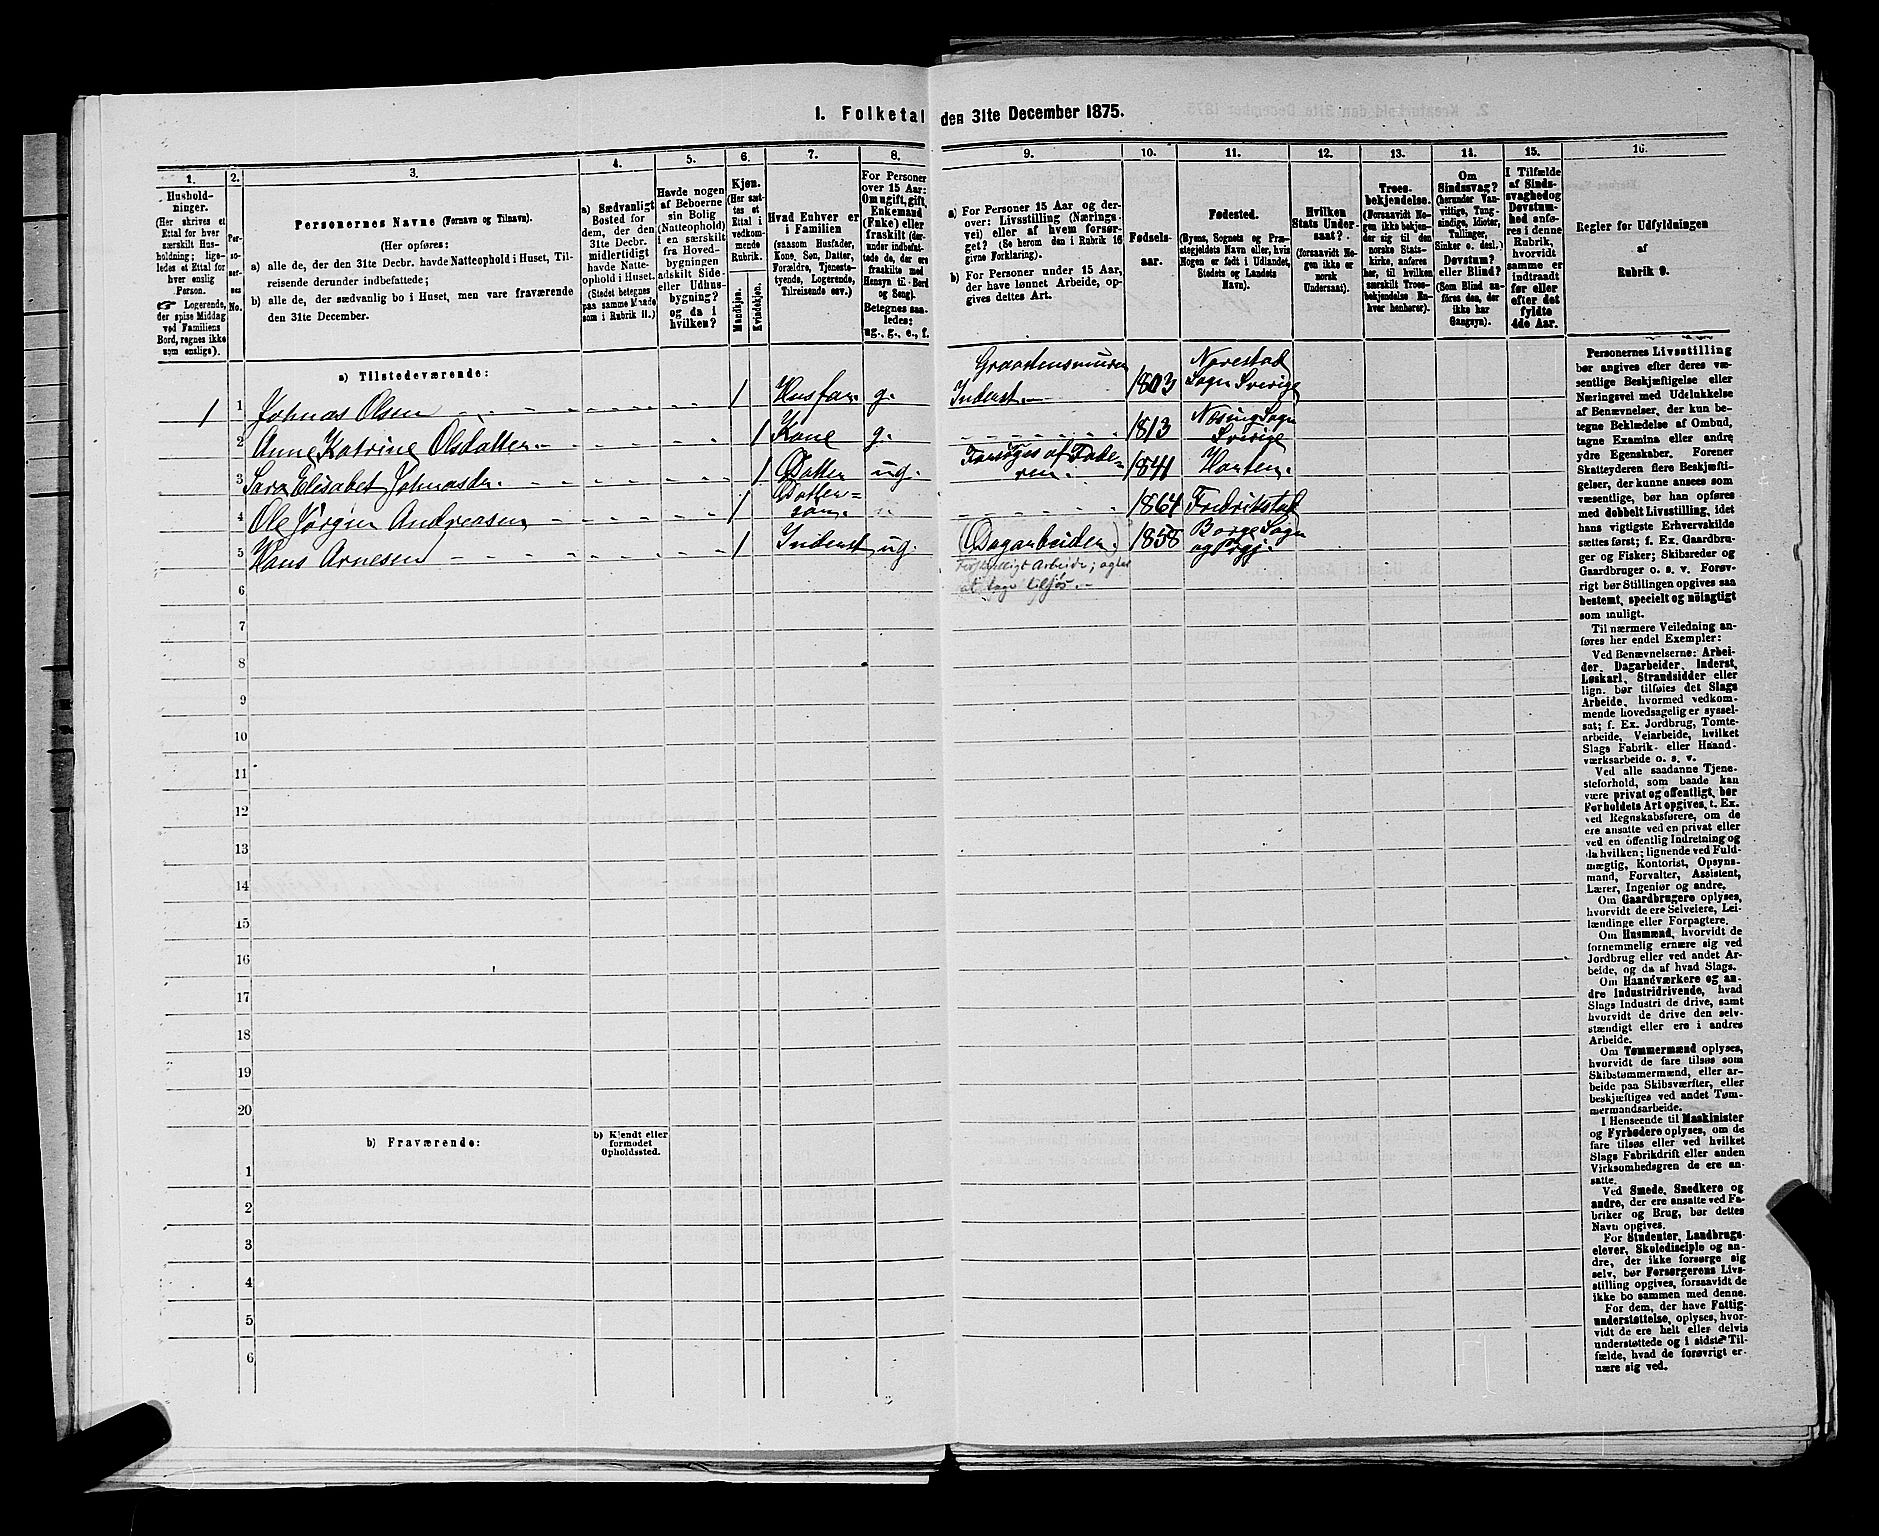 1. Folketal den 31te December 1875.
1. 2. 3. 4. 5. 6. 7. 8. 9. 10. 11. 12. 13. 14. 15. 16.
Hushold-
ninger.
(Her skrives et
Ettal for hver
særskilt Hus-
holdning; lige-
ledes et Ettal for
hver enslig
Person.
☞ Logerende,
der spise Middag
ved Familiens
Bord, regnes ikke
som enslige).
Per-
so-
ner-
nes
No.
Personernes Navne (Fornavn og Tilnavn).
(Her opføres:
a) alle de, der den 31te Decbr. havde Natteophold i Huset, Til-
reisende derunder indbefattede;
b) alle de, der sædvanlig bo i Huset, men vare fraværende
den 31te December.
a) Sædvanligt
Bosted for
dem, der den
31te Decbr.
midlertidigt
havde Natte-
ophold i Huset.
(Stedet betegnes
paa samme Maade
som i Rubrik 11.)
Havde nogen
af Beboerne
sin Bolig
(Natteophold)
i en særskilt
fra Hoved-
bygningen
adskilt Side-
eller Udhus-
bygning?
og da i
hvilken?
Kjøn.
(Her sæt-
tes et
Ettal i
vedkom-
mende
Rubrik.
Mandkjøn.
Kvindekjøn.
Hvad Enhver er
i Familien
(saasom Husfader,
Kone, Søn, Datter,
Forældre, Tjeneste-
tyende, Logerende,
Tilreisende osv.)
For Personer
over 15 Aar:
Om ugift, gift,
Enkemand
(Enke) eller
fraskilt (der-
under indbefat-
tede de, der ere
fraskilte med
Hensyn til Bord
og Seng).
Betegnes saa-
ledes:
ug., g., e., f.
a) For Personer 15 Aar og der-
over: Livsstilling (Nærings-
vei) eller af hvem forsør-
get? (Se herom den i Rubrik 16
givne Forklaring).
b) For Personer under 15 Aar,
der have lønnet Arbeide, op-
gives dettes Art.
Fødsels-
aar.
Fødested.
(Byens, Sognets og Præ-
stegjeldets Navn eller, hvis
Nogen er født i Udlandet,
Stedets og Landets
Navn).
Hvilken
Stats Under-
saat?
(forsaavidt No-
gen ikke er
norsk
Undersaat).
Troes-
bekjendelse.
(Forsaavidt No-
gen ikke bekjen-
der sig til den
norske Stats-
kirke, anføres
her, til hvilken
særskilt Troes-
bekjendelse En-
hver henhører).
Om
Sindssvag?
(herunder Van-
vittige, Tung-
sindige, Idioter,
Tullinger,
Sinker o. desl.)
Døvstum?
eller Blind?
(Som Blind an-
føres den, der
ikke har
Gangsyn).
I Tilfælde
af Sinds-
svaghed og
Døvstum-
hed anfø-
res i denne
Rubrik,
hvorvidt
samme er
indtraadt
før eller
efter det
fyldte
4de Aar.
Regler for Udfyldningen
af
Rubrik 9.
a) Tilstedeværende:
1 1 Johnas Olsen 1 Husfar. g. Inderst. 1803 Sogn Sverige
2 Anne Katrine Olsdatter. 1 Kone g. 1813 Sverige
3 Sara Elisabet Johnasdr. 1 Datter ug. Forsørges af Fade-
ren. 1841 Horten.
4 Ole Jørgen Andreasen 1 Datter-
søn. 1864 Fredrikstad
5 Hans Arnesen 1 Inderst ug. (Dagarbeider.) 1858 Borge Sogn
og Prgj.
at tage tilsjøs.
6
7
8
9
10
11
12
13
14
15
16
17
18
19
20
b) Fraværende:
b) Kjendt eller
formodet
Opholdssted.
1
2
3
4
5
6
Personernes Livsstilling
bør angives efter deres væ-
sentlige Beskjæftigelse eller
Næringsvei med Udelukkelse
af Benævnelser, der kun be-
tegne Beklædelse af Ombud,
tagne Examina eller andre
ydre Egenskaber. Forener
Skatteyderen flere Beskjæfti-
gelser, der kunne ansees som
væsentlige, bør han opføres
med dobbelt Livsstilling, idet
hans vigtigste Erhvervskilde
sættes først; f. Ex. Gaardbru-
ger og Fisker; Skibsreder og
Gaardbruger o. s. v. Forøv-
rigt bør Stillingen opgives saa
bestemt, specielt og nøiagtigt
som muligt.
Til nærmere Veiledning an-
føres her endel Exempler:
Ved Benævnelserne: Arbei-
der, Dagarbeider, Inderst,
Løskarl, Strandsidder eller
lign. bør tilføies det Slags
Arbeide, hvormed vedkom-
mende hovedsagelig er syssel-
sat; f. Ex. Jordbrug, Tomte-
arbeide, Veiarbeide, hvilket
Slags Fabrik- eller Haand-
værksarbeide o. s. v.
Ved alle saadanne Tjene-
steforhold, som baade kan
være privat og offentligt, bør
Forholdets Art opgives, t. Ex.
ved Regnskabsførere, om de
ere ansatte ved en privat eller
ved en offentlig Indretning og
da hvilken; lignende ved Fuld-
mægtig, Kontorist, Opsyns-
mand, Forvalter, Assistent,
Lærer, Ingeniør og andre.
Om Gaardbrugere oplyses,
hvorvidt de ere Selveiere, Lei-
lændinge eller Forpagtere.
Om Husmænd, hvorvidt de
fornemmelig ernære sig ved
Jordbrug eller ved andet Ar-
beide, og da af hvad Slags.
Om Haandværkere og an-
dre Industridrivende, hvad
Slags Industri de drive, samt
hvorvidt de drive den selv-
stændigt eller ere i andres
Arbeide.
Om Tømmermænd oplyses,
hvorvidt de fare tilsøs som
Skibstømmermænd, eller ar-
beide paa Skibsværfter, eller
beskjæftiges ved andet Tøm-
mermandsarbeide.
I Henseende til Maskinister
og Fyrbødere oplyses, om de
fare tilsøs eller ved hvilket
Slags Fabrikdrift eller anden
Virksomhedsgren de ere an-
satte.
Ved Smede, Snedkere og
andre, der ere ansatte ved Fa-
briker og Brug, bør dettes
Navn opgives.
For Studenter, Landbrugs-
elever, Skoledisciple og an-
dre, der ikke forsørge sig
selv, bør Forsørgerens Livs-
stilling opgives, forsaavidt de
ikke bo sammen med denne.
For dem, der have Fattig-
understøttelse, oplyses, hvor-
vidt de ere helt eller delvis
understøttede og i sidste Til-
fælde, hvad de forøvrigt er-
nære sig ved.